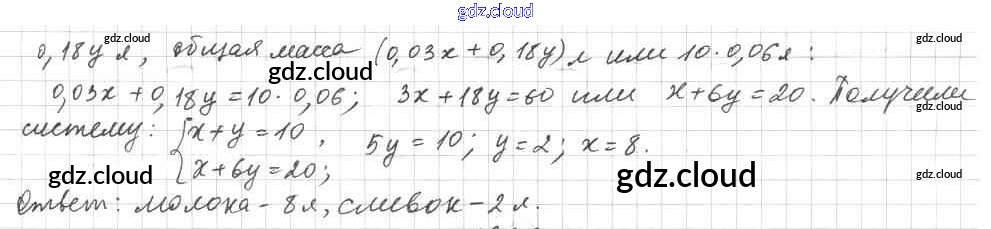 gdz.cloud
gdz.cloud gdz.cloud
0,18y л, общая масса (0,03x + 0,18y) л или 10·0,06л:
gdz.cloud
0,03x + 0,18y = 10·0,06; 3x + 18y = 60 или x + 6y = 20. Получили
систему: {x + y = 10, 5y = 10; y = 2; x = 8.
{x + 6y = 20;
gdz.cloud gdz.cloud gdz.cloud gdz.cloud
Ответ: молока - 8л, сливок - 2л.